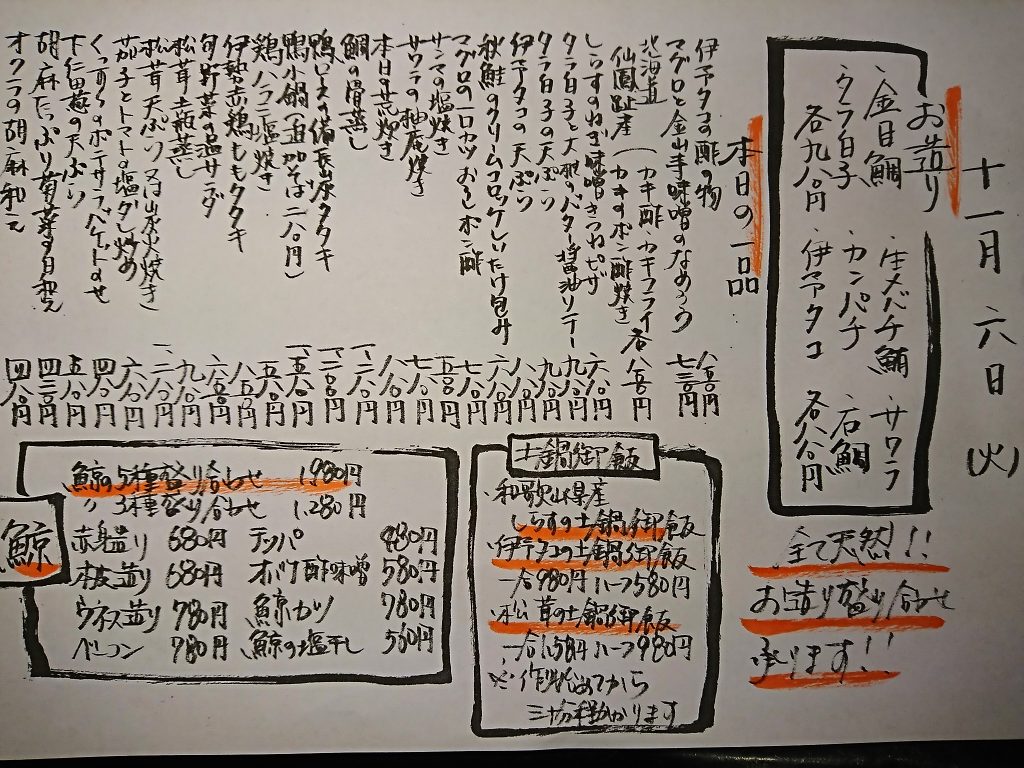 十一月六日(火)
お造り
・金目鯛 ・生メバチ鮪 ・サワラ
・タラ白子 ・カンパチ ・石鯛
各九八〇円 ・伊予タコ 各八八〇円
全て天然!!
お造り盛り合わせ
承ります!!
本日の一品
伊予タコの酢の物 八五〇円
マグロと金山寺味噌のなめろう 七三〇円
北海道
仙鳳趾産 (カキ酢・カキフライ
カキのポン酢焼き 各八五〇円
しらすのねぎ味噌きつねピザ 六八〇円
タラ白子と大根のバター醤油ソテー 九八〇円
タラ白子の天ぷら 九八〇円
伊予タコの天ぷら 八八〇円
秋鮭のクリームコロッケしいたけ包み 六八〇円
マグロの一口カツおろしポン酢 七八〇円
サンマの塩焼き 五八〇円
サワラの柚庵焼き 七八〇円
本日の煮炊き 八八〇円
鯛の骨蒸し 八八〇円
鴨ロースの備長炭タタキ
鴨小鍋(追加そば二八〇円)
鶏ハラミ塩焼き
伊勢赤鶏ももタタキ
旬野菜の温サラダ
松茸土瓶蒸し
松茸天ぷら又は炭火焼き
茄子とトマトの塩ダレ炒め
くっすんのポテサラバゲットのせ 四八〇円
下仁田葱の天ぷら 五八〇円
胡麻たっぷり菊菜の白和え 四三〇円
オクラの胡麻和え 四八〇円
土鍋御飯
・和歌山県産
しらすの土鍋御飯
・伊予タコの土鍋御飯
一合980円ハーフ580円
・松茸の土鍋御飯
一合1,580円ハーフ980円
※作り始めてから
三十分程かかります
鯨
・鯨の5種盛り合わせ 1,980円
〃 3種盛り合わせ 1,280円
・赤身造り 680円 ・テッパ 880円
・本皮造り 680円 ・オバケ酢味噌 580円
・ウネス造り 780円 ・鯨カツ 780円
・ベーコン 780円 ・鯨の塩干し 560円